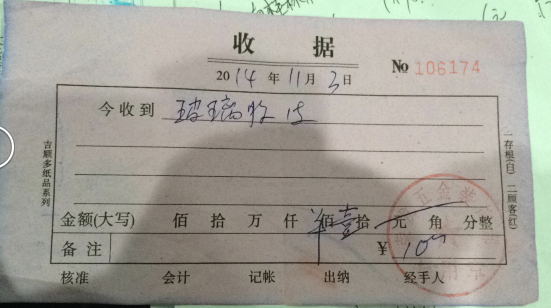 收据
2014年11月3日
No 106174
今收到 玻璃胶 
金额(大写) 佰 拾 万 仟 佰 壹拾 元 角 分整
备注 ¥ 10
核准 会计 记帐 出纳 经手人
吉顺多纸品系列
一存根(白) 二顾客(红)
五金